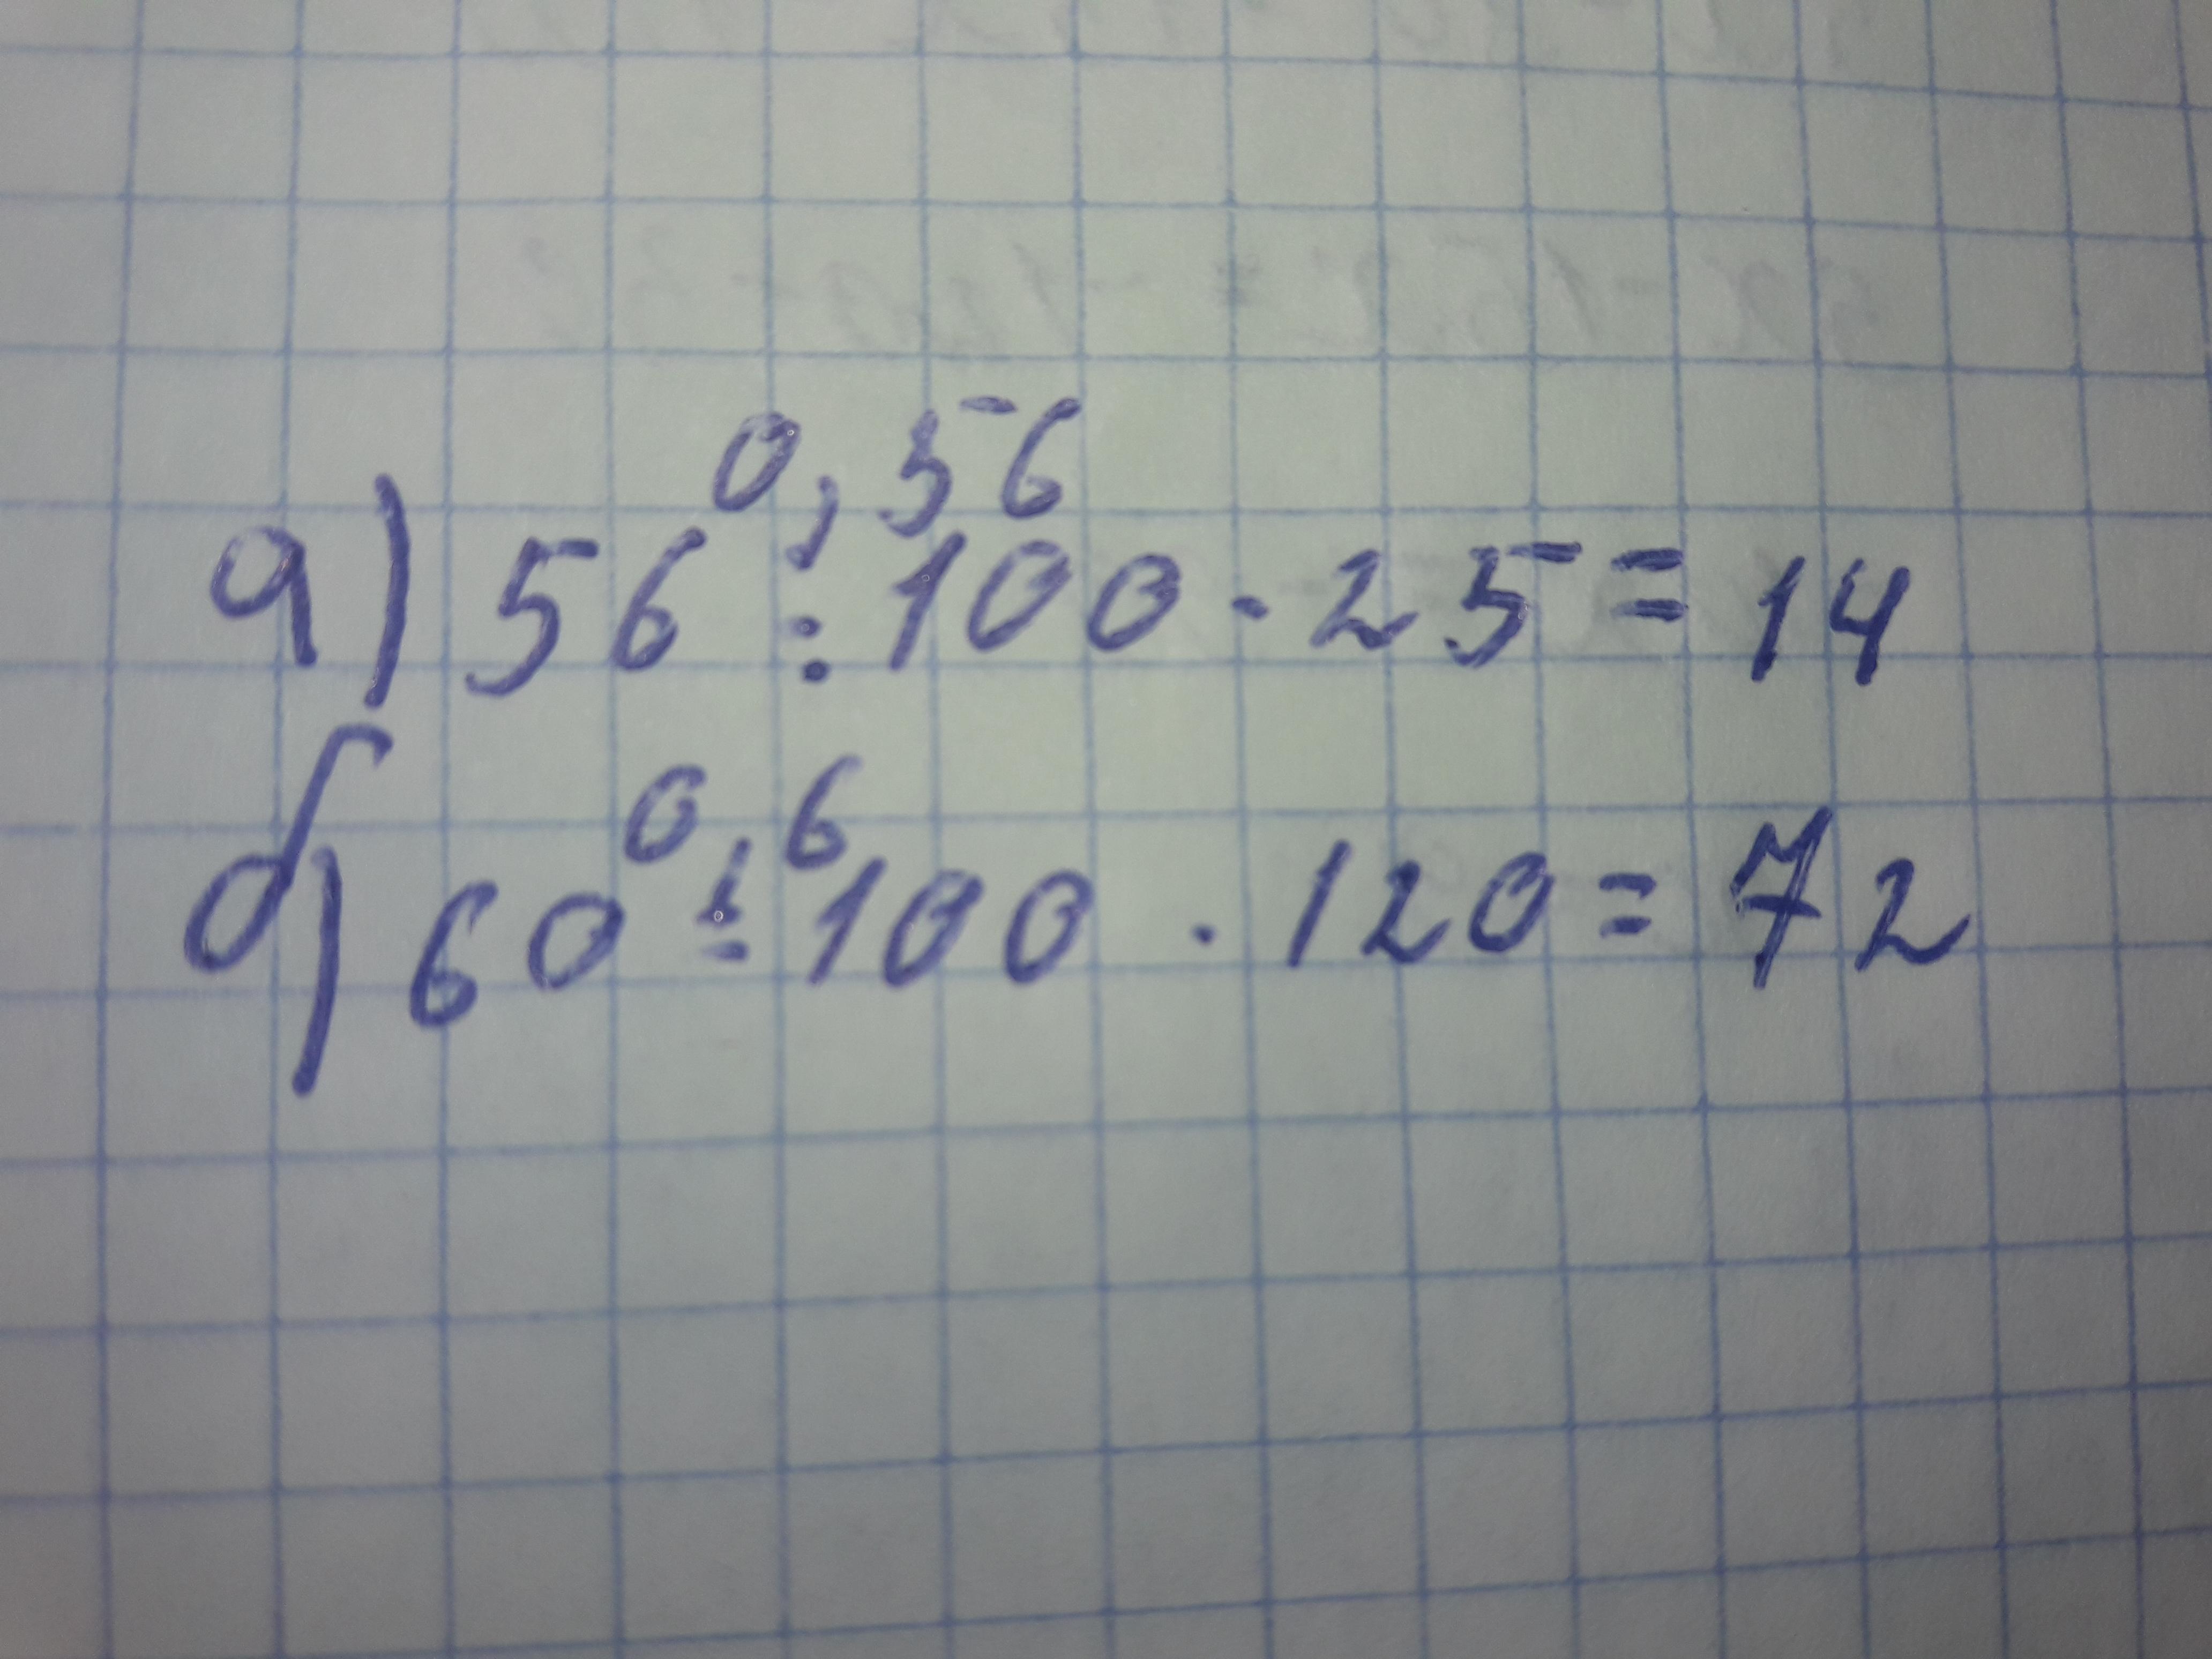 0,56
а) 56 : 100 · 25 = 14
0,6
б) 60 : 100 · 120 = 72